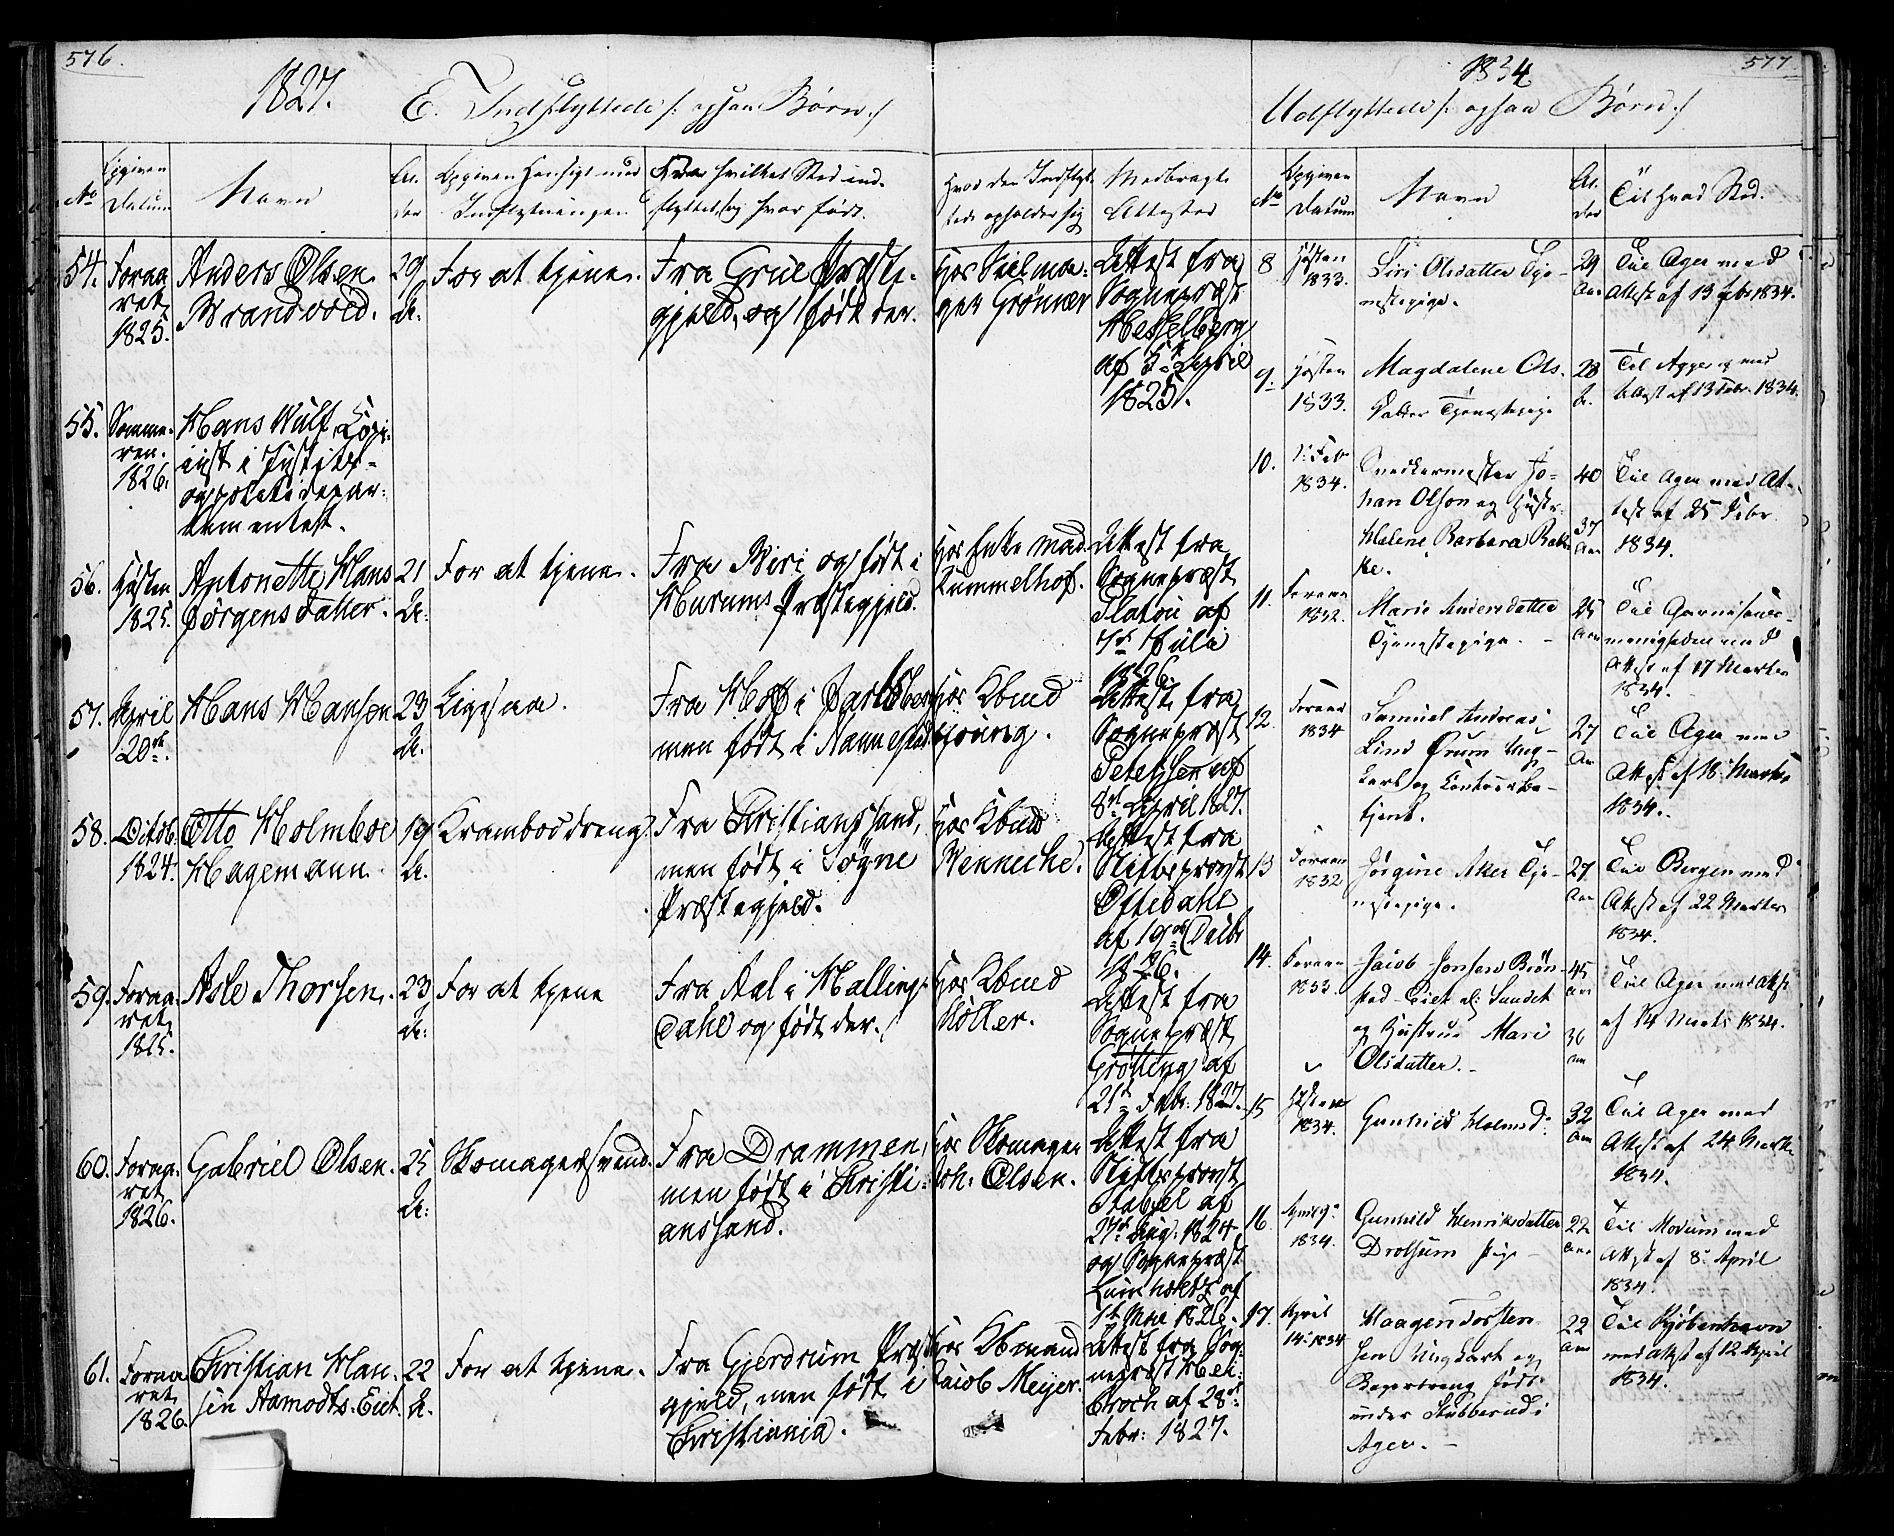 576.
1827.
E. Indflyttede /: ogsaa Børn :/
No
Opgiven
Datum
Navn
Al-
der
Opgiven Hensigt med
Indflytningen
Fra hvilket Sted ind-
flyttet, og hvor født.
Hvor den Indflyt-
tede opholder sig
Medbragte
Attester
54.
Foraa-
ret
1825.
Anders Olsen
Brandvold.
29
A.
For at tjene.
Fra Grue Præste-
gjeld, og født der.
Hos
Grønner
Attest fra
Sognepræst
Hesselberg
af 3die April
1825.
55.
Somme-
ren.
1826.
Hans Wulf, Copi-
ist i Justits-
og politidepar-
tementet.
56.
Høsten
1825.
Antonette Hans
Jørgensdatter.
21
A.
For at tjene.
Fra Biri og født i
Hurums Præstegjeld.
Hos Enke Mad.
Kummelhof.
Attest fra
Sognepræst
Platou af
7de Julii
1826.
57.
April
20de.
Hans Hansen
23
A.
Ligesaa.
Fra Hoff i Jarlsberg
men født i Nannestad
Hos Kbmd
Young.
Attest fra
Sognepræst
Petersen af
8de April 1827.
58.
Octob.
1824.
Otto Holmboe
Hagemann.
19
A.
Kramboddreng.
Fra Christianssand,
men født i Søgne
Præstegjeld.
Hos Kbmd
Wenneche.
Attest fra
Stiftsprovst
Oftedahl
af 19de Octbr
1826.
59.
Foraa-
ret
1825.
Asle Thorsen.
23
A.
For at tjene
Fra Aal i Halling-
dahl og født der.
Hos Kbmd
Møller.
Attest fra
Sognepræst
Grøtting af
21de Febr. 1827.
60.
Foraa-
ret
1826.
Gabriel Olsen.
25
A.
Skomagersvend.
Fra Drammen,
men født i Christi-
anssand.
Hos Skomager
Joh: Olsen.
Attest fra
Stiftsprovst
Stabel af
27de Aug: 1824
og Sognepræst
Lumholtz af
1ste Mai 1826.
61.
Foraa-
ret
1826.
Christian Han-
sen Aamodts-Eiet.
22
A.
For at tjene.
Fra Gjerdrum Præst
gjeld, men født i
Christiania.
Hos Kbmand
Jacob Meyer.
Attest fra Sog-
nepræst
Broch af 28de
Febr: 1827.
1834
577
Udflyttede /: ogsaa Børn :/
No
Opgiven
Datum
Navn
Al-
der
Til hvad Sted.
8
Høsten
1833.
Siri Olsdatter Tje-
nestepige.
29
Aar
Til Ager med
Attest af 13 Febr 1834.
9.
Høsten
1833.
Magdalene Ols-
datter Tjenestepige
28
A.
Til Agger og med
Attest af 13 Febr. 1834.
10.
Feb
1834.
Snedkermester Jo-
han Olson og Hustr.
Helene Barbara
ke.
40
37
Aar
Til Ager med At-
test af 25 Febr.
1834.
11.
Foraar
1832.
Marie Andersdatter
Tjenestepige.
25
Aar
Til Garnisons-
menigheden med
Attest af 17 Marts
1834.
12.
Foraar
1834
Samuel Andreas
Lind Ørum Ung-
karl og Contoirbe-
tjent.
27
Aar
Til Ager med
Attest af 18 Marts
1834.
13
Foraar
1832
Jørgine Aker Tje-
nestepige.
27
Aar
Til Bergen med
Attest af 22 Marts
1834.
14.
Foraar
1833.
Jacob Jonsen Brøn-
sted-Eiet al: Sandet
og Hustrue Mari
Olsdatter.
45
Aar
36
Aar
Til Ager med Attest
af 14 Marts 1834.
15
Høsten
1834.
Gunhild Holmsd:
32
Aar
Til Ager med
Attest af 24 Marts
1834.
16.
April 9
1834.
Gunhild Henriksdatter
Drolsum Pige
22
Aar
Til Modum med
Attest af 8 April
1834.
17.
April
14 1834
Haagen Torsten-
sen Ungkarl og
Bagerdreng født
under Stubberud i
Ager.
22
Aar
Til Kjøbenhavn
med Attest af 12 April
1834.